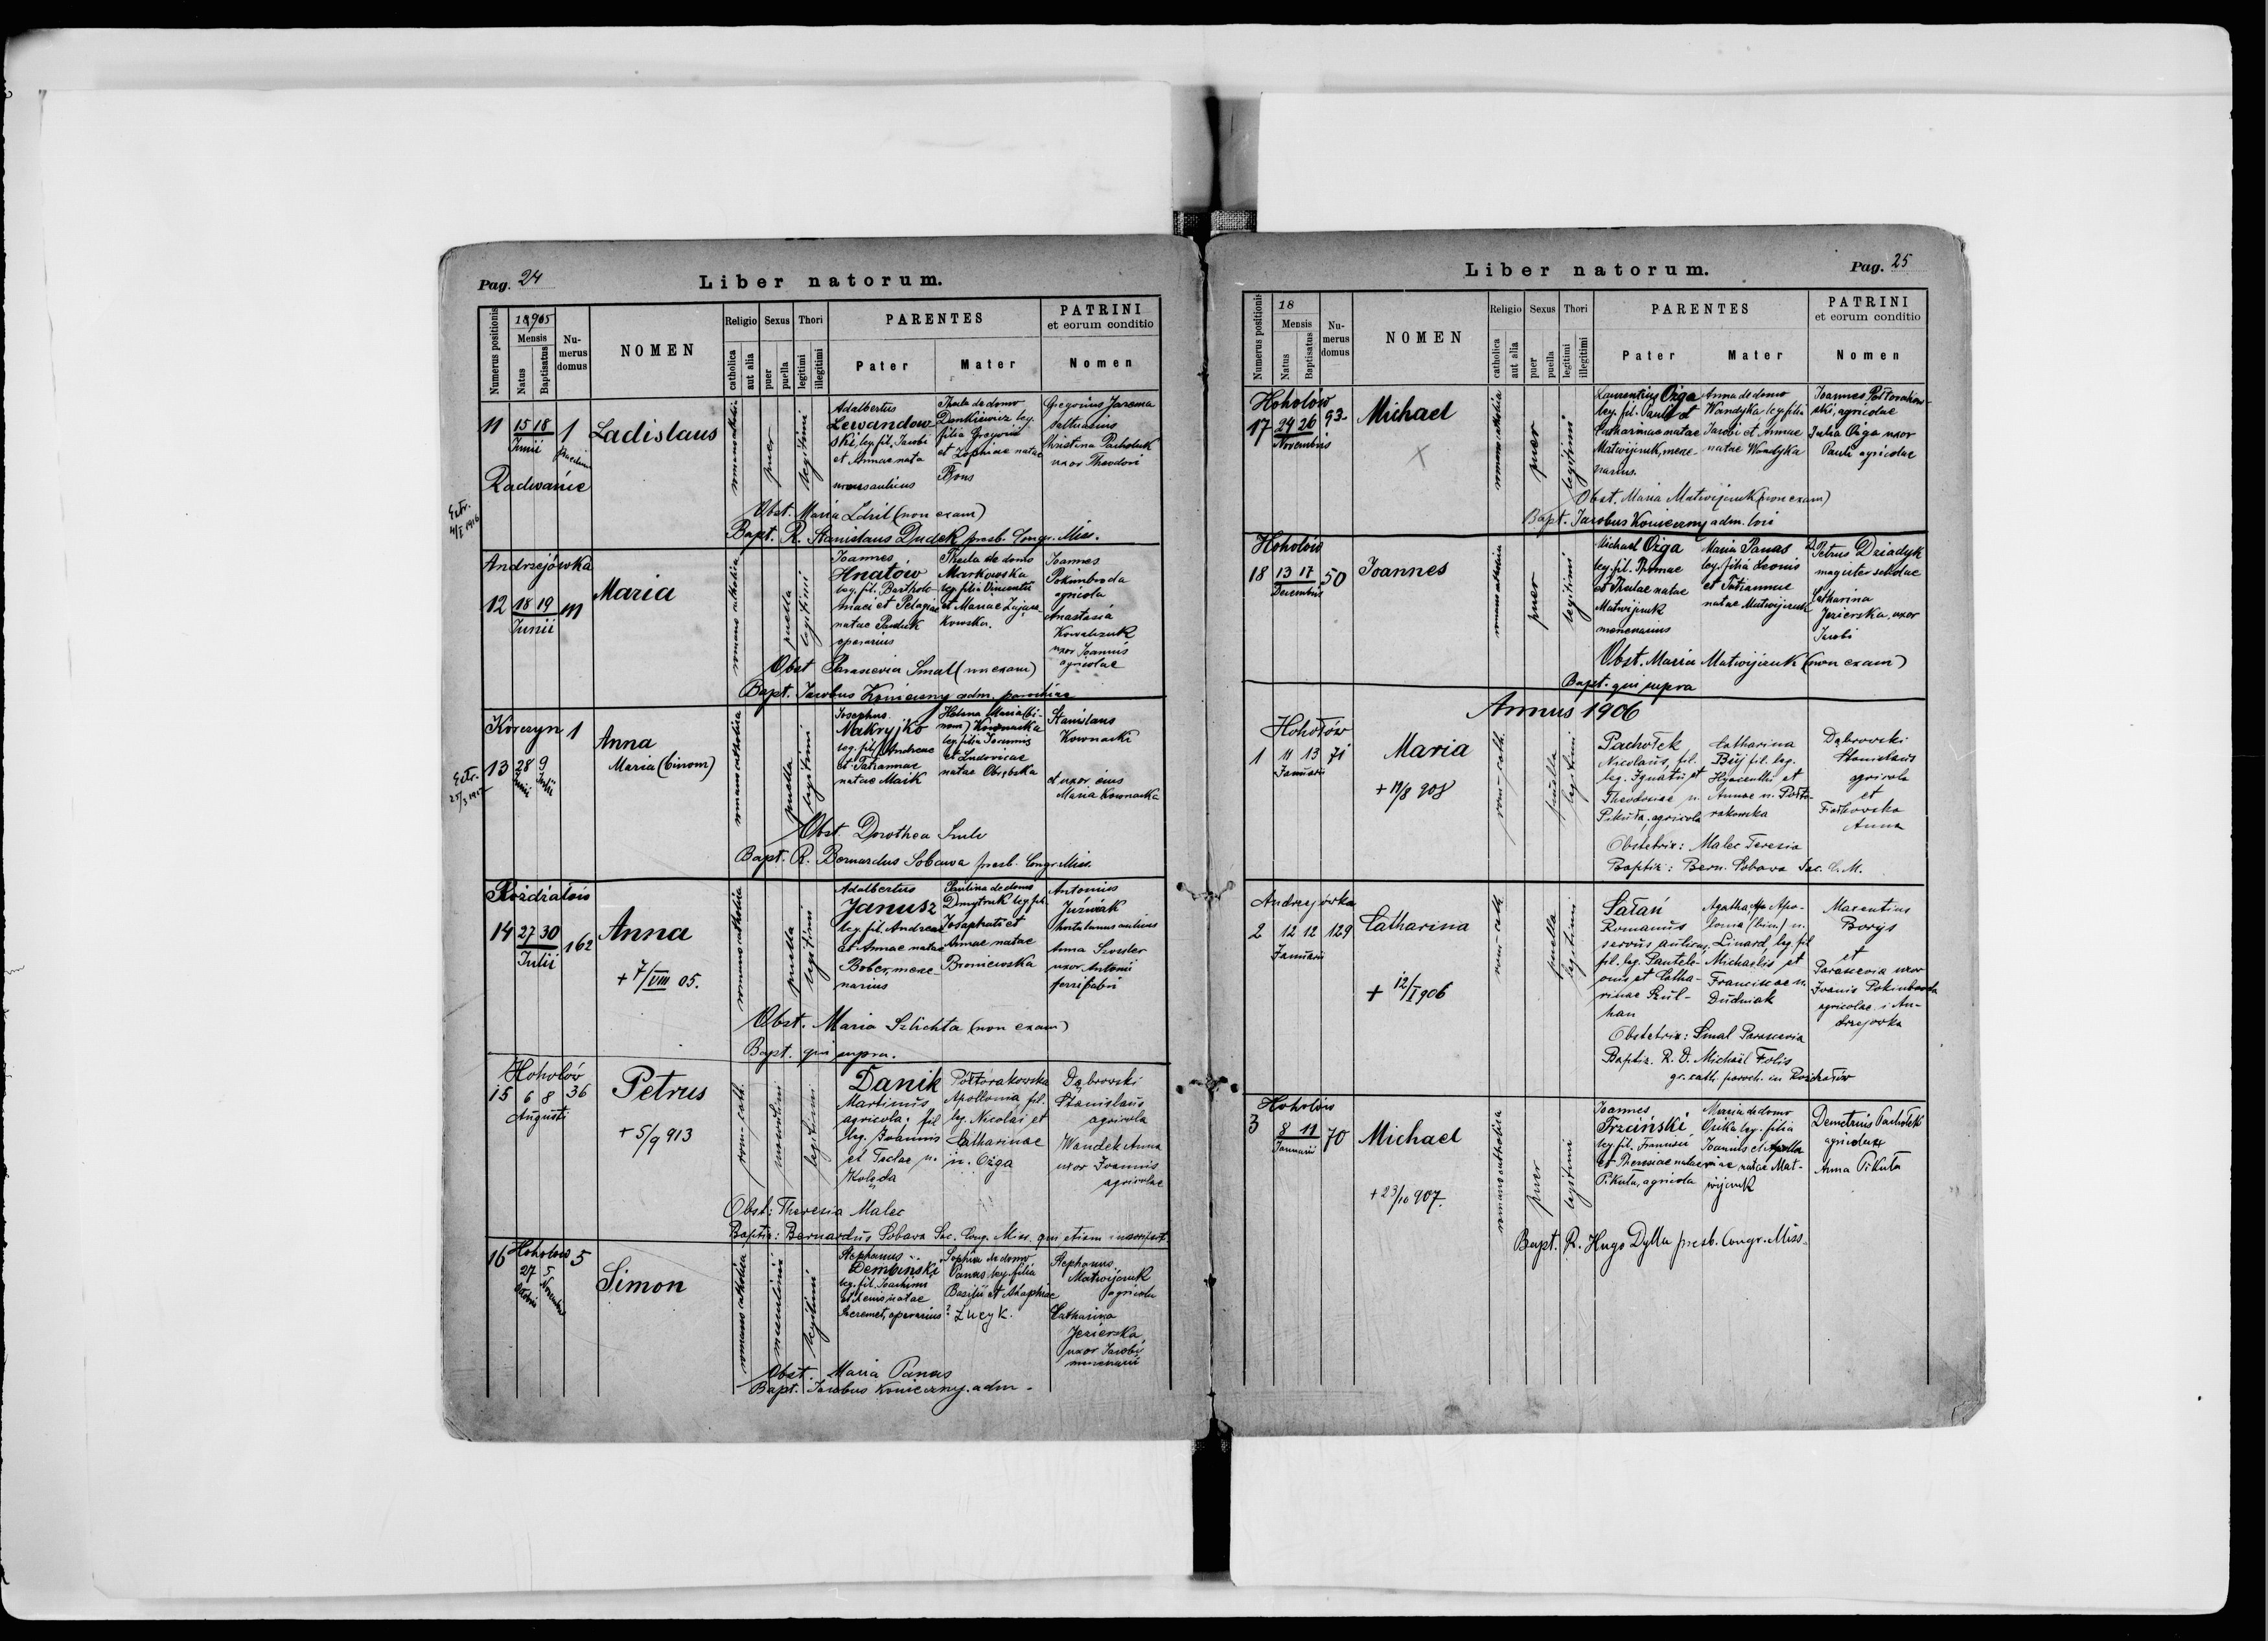 Pag. 24
Liber natorum.
Numerus positionis
1905
Mensis
Natus
Baptisatus
Numerus domus
NOMEN
Religio
catholica
aut alia
Sexus
puer
puella
Thori
legitimi
illegitimi
PARENTES
Pater
Mater
PATRINI
et eorum conditio
Nomen
11
15 18
Junii
1
Radwańce
Ladislaus
romano catholica
puer
legitimi
Adalbertus
Lewandow-
ski, leg. fil. Jacobi
et Annae nata
Thecla de domo
Dankiewicz leg.
filia Gregorii
et Zophiae natae
Gregorius Jarema
Christina Pacholuk
uxor Theodori
Obst. Maria (non exam)
Bapt. R. Stanislaus Dudek presb. Congr. Miss.
Extr.
4/I 1916
Andrzejówka
12
18 19
Junii
111
Maria
romano catholica
puella
legitimi
Joannes
Hnatów
leg. fil. Bartholo-
maei et Pelagiae
natae Panduk
operarius
Thecla de domo
Markowska
leg. filia Vincentii
et Mariae Zając-
kowska.
Joannes
Pokinbroda
agricola
Anastasia
Kowalczuk
uxor Joannis
agricolae
Obst. Parascevia Smal (non exam)
Bapt. Jacobus Konieczny adm. parochiae
Korczyn 1
13
28 9
Junii Julii
Anna
Maria (binom)
romano catholica
puella
legitimi
Josephus
Makryjko
leg. fil. Andreae
et Tatiannae
natae Maik
Helena Maria (bi-
nom) Kownacka
leg. filia Joannis
et Ludovicae
natae Obrębska
Stanislaus
Kownacki
et uxor eius
Maria Kownacka
Obst. Dorothea Szulc
Bapt. R. Bernardus Sobawa presb. Congr. Miss.
Extr.
Rozdziałów
14
27 30
Julii
162
Anna
+ 7/VIII 05.
romano catholica
puella
legitimi
Adalbertus
Janusz
leg. fil. Andreae
et Annae natae
Bober, merce-
narius
Paulina de domo
Dmytruk leg. fil.
Josaphati et
Annae natae
Broniewska
Antonius
Juźwiak
hortulanus aulicus
Anna
uxor Antonii
ferrifabri
Obst. Maria Szlichta (non exam)
Bapt. qui supra.
Hohołów
15
6 8
Augusti
36
Petrus
+ 5/9 913
rom.-cath.
masculini
legitimi
Danik
Martinus
agricola, fil.
leg. Joannis
et Teclae n.
Koloda
Półtorakowska
Apollonia fil.
leg. Nicolai et
Catharinae
n. Ożga
Dąbrowski
Stanislaus
agricola
Wandek Anna
uxor Joannis
agricolae
Obst: Theresia Malec
Baptiz: Bernardus Sobawa Sac. Cong. Miss. qui etiam inscripsit
16
Hohołów 5
27 5
Octobris Novembris
Simon
romano catholica
masculini
legitimi
Stephanus
Dembinski
leg. fil. Joachimi
et Xeniae natae
Jeremet, operarius
Sophia de domo
Panas leg. filia
Basilii et Agaphiae
? Łucyk.
Stephanus
Matwijczuk
agricola
Catharina
Jezierska,
uxor Jacobi
mercenarii
Obst. Maria Panas
Bapt. Jacobus Konieczny adm.
Liber natorum.
Pag. 25
Numerus positionis
18
Mensis
Natus
Baptisatus
Numerus domus
NOMEN
Religio
catholica
aut alia
Sexus
puer
puella
Thori
legitimi
illegitimi
PARENTES
Pater
Mater
PATRINI
et eorum conditio
Nomen
Hohołów
17
24 26
Novembris
93
Michael
romano catholica
puer
legitimi
Laurentius Ożga
leg. fil. Pauli et
Catharinae natae
Matwijczuk, merce-
narius.
Anna de domo
Wandyka leg. filia
Jacobi et Annae
natae Wandyka
Joannes Półtorakow-
ski, agricolae
Julia Ożga uxor
Pauli agricolae
Obst. Maria Matwijczuk (non exam)
Bapt. Jacobus Konieczny adm. loci
Hohołów
18
13 17
Decembris
50
Joannes
romano catholica
puer
legitimi
Michael Ożga
leg. fil. Thomae
et Theclae natae
Matwijczuk
mercenarius
Maria Panas
leg. filia Leonis
et Tatiannae
natae Matwijczuk
Petrus Dziadyk
magister scholae
Catharina
Jezierska, uxor
Jacobi
Obst. Maria Matwijczuk (non exam)
Bapt. qui supra
Annus 1906
Hohołów
1
11 13
Januarii
71
Maria
+ 19/8 908
rom.-cath.
puella
legitimi
Pachołek
Nicolaus, fil.
leg. Ignatii et
Theodosiae n.
Pikuła, agricola
Catharina
Buj fil. leg.
Hyacenthi et
Annae n. Półto-
rakowska
Dąbrowski
Stanislaus
agricola
et
Anna
Obstetrix: Malec Teresia
Baptiz: Bern. Sobawa Sac. C. M.
Andrzejówka
2
12 12
Januarii
129
Catharina
+ 12/I 906
rom-cath
puella
legitimi
Sałań
Romanus
servus aulicus,
fil. leg. Pantele-
onis et Catha-
rinae Szul-
han
Agatha Apo-
lonia (bin.) n.
Linard, leg. fil
Michaelis et
Franciscae n.
Dudniak
Maxentius
Borys
et
Parascevia uxor
Ivanis Pokinbroda
agricolae i An-
drzejowka
Obstetrix: Smal Parascevia
Baptiz. R. D. Michael Folis
gr. cath. paroch. in Rozdziałów
Hohołów
3
8 11
Januarii
70
Michael
+ 23/10 907.
romano catholica
puer
legitimi
Joannes
Trzciński
leg. fil. Francisci
et Theresiae natae
Pikuła, agricola
Maria de domo
leg. filia
Joannis et Apollo-
niae natae Mat-
wijczuk
Demetrius Pachołek
agricola
Anna Pikuła
Bapt. R. Hugo Dylla presb. Congr. Miss.